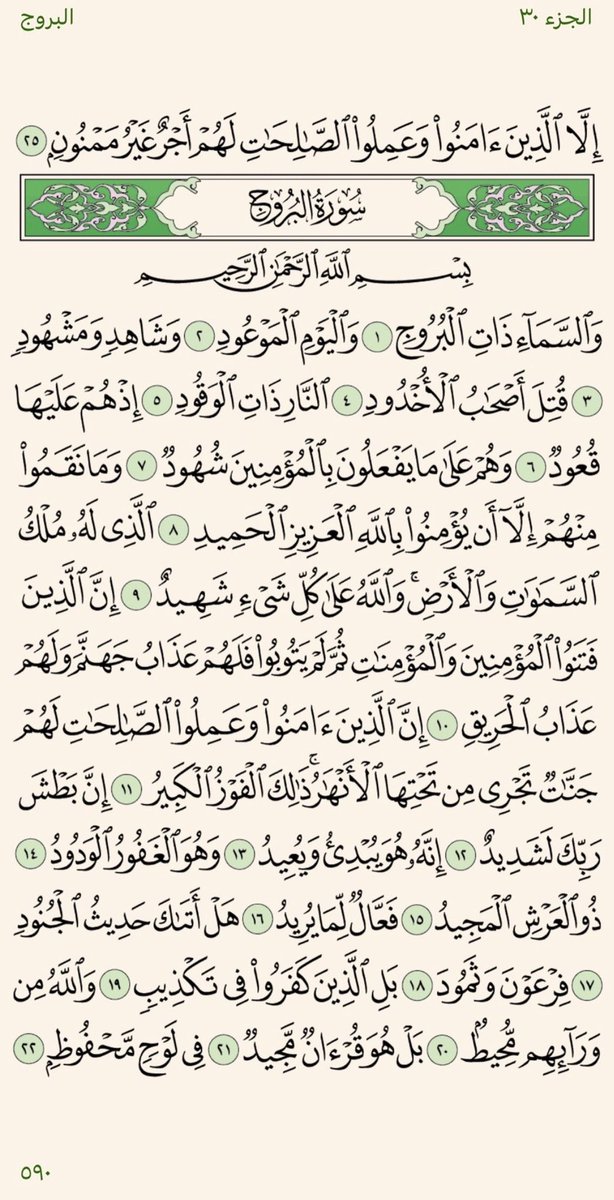 الجزء ٣٠
البروج
إِلَّا ٱلَّذِينَ ءَامَنُوا۟ وَعَمِلُوا۟ ٱلصَّـٰلِحَـٰتِ لَهُمۡ أَجۡرٌ غَيۡرُ مَمۡنُونِۭ ٢٥
سُورَةُ البُرُوجِ
بِسۡمِ ٱللَّهِ ٱلرَّحۡمَـٰنِ ٱلرَّحِيمِ
وَٱلسَّمَآءِ ذَاتِ ٱلۡبُرُوجِ ١ وَٱلۡيَوۡمِ ٱلۡمَوۡعُودِ ٢ وَشَاهِدٍ وَمَشۡهُودٍ
٣ قُتِلَ أَصۡحَـٰبُ ٱلۡأُخۡدُودِ ٤ ٱلنَّارِ ذَاتِ ٱلۡوَقُودِ ٥ إِذۡ هُمۡ عَلَيۡهَا
قُعُودٌ ٦ وَهُمۡ عَلَىٰ مَا يَفۡعَلُونَ بِٱلۡمُؤۡمِنِينَ شُهُودٌ ٧ وَمَا نَقَمُوا۟
مِنۡهُمۡ إِلَّآ أَن يُؤۡمِنُوا۟ بِٱللَّهِ ٱلۡعَزِيزِ ٱلۡحَمِيدِ ٨ ٱلَّذِى لَهُۥ مُلۡكُ
ٱلسَّمَـٰوَٰتِ وَٱلۡأَرۡضِۚ وَٱللَّهُ عَلَىٰ كُلِّ شَىۡءٍ شَهِيدٌ ٩ إِنَّ ٱلَّذِينَ
فَتَنُوا۟ ٱلۡمُؤۡمِنِينَ وَٱلۡمُؤۡمِنَـٰتِ ثُمَّ لَمۡ يَتُوبُوا۟ فَلَهُمۡ عَذَابُ جَهَنَّمَ وَلَهُمۡ
عَذَابُ ٱلۡحَرِيقِ ١٠ إِنَّ ٱلَّذِينَ ءَامَنُوا۟ وَعَمِلُوا۟ ٱلصَّـٰلِحَـٰتِ لَهُمۡ
جَنَّـٰتٌ تَجۡرِى مِن تَحۡتِهَا ٱلۡأَنۡهَـٰرُۚ ذَٰلِكَ ٱلۡفَوۡزُ ٱلۡكَبِيرُ ١١ إِنَّ بَطۡشَ
رَبِّكَ لَشَدِيدٌ ١٢ إِنَّهُۥ هُوَ يُبۡدِئُ وَيُعِيدُ ١٣ وَهُوَ ٱلۡغَفُورُ ٱلۡوَدُودُ ١٤
ذُو ٱلۡعَرۡشِ ٱلۡمَجِيدُ ١٥ فَعَّالٌ لِّمَا يُرِيدُ ١٦ هَلۡ أَتَىٰكَ حَدِيثُ ٱلۡجُنُودِ
١٧ فِرۡعَوۡنَ وَثَمُودَ ١٨ بَلِ ٱلَّذِينَ كَفَرُوا۟ فِى تَكۡذِيبٍ ١٩ وَٱللَّهُ مِن
وَرَآئِهِم مُّحِيطُۢ ٢٠ بَلۡ هُوَ قُرۡءَانٌ مَّجِيدٌ ٢١ فِى لَوۡحٍ مَّحۡفُوظِۭ ٢٢
٥٩٠